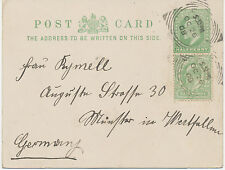 POST CARD
THE ADDRESS TO BE WRITTEN ON THIS SIDE.
HALFPENNY
Frau Kymell
Auguste Strasse 30
Münster in Westfallen
Germany